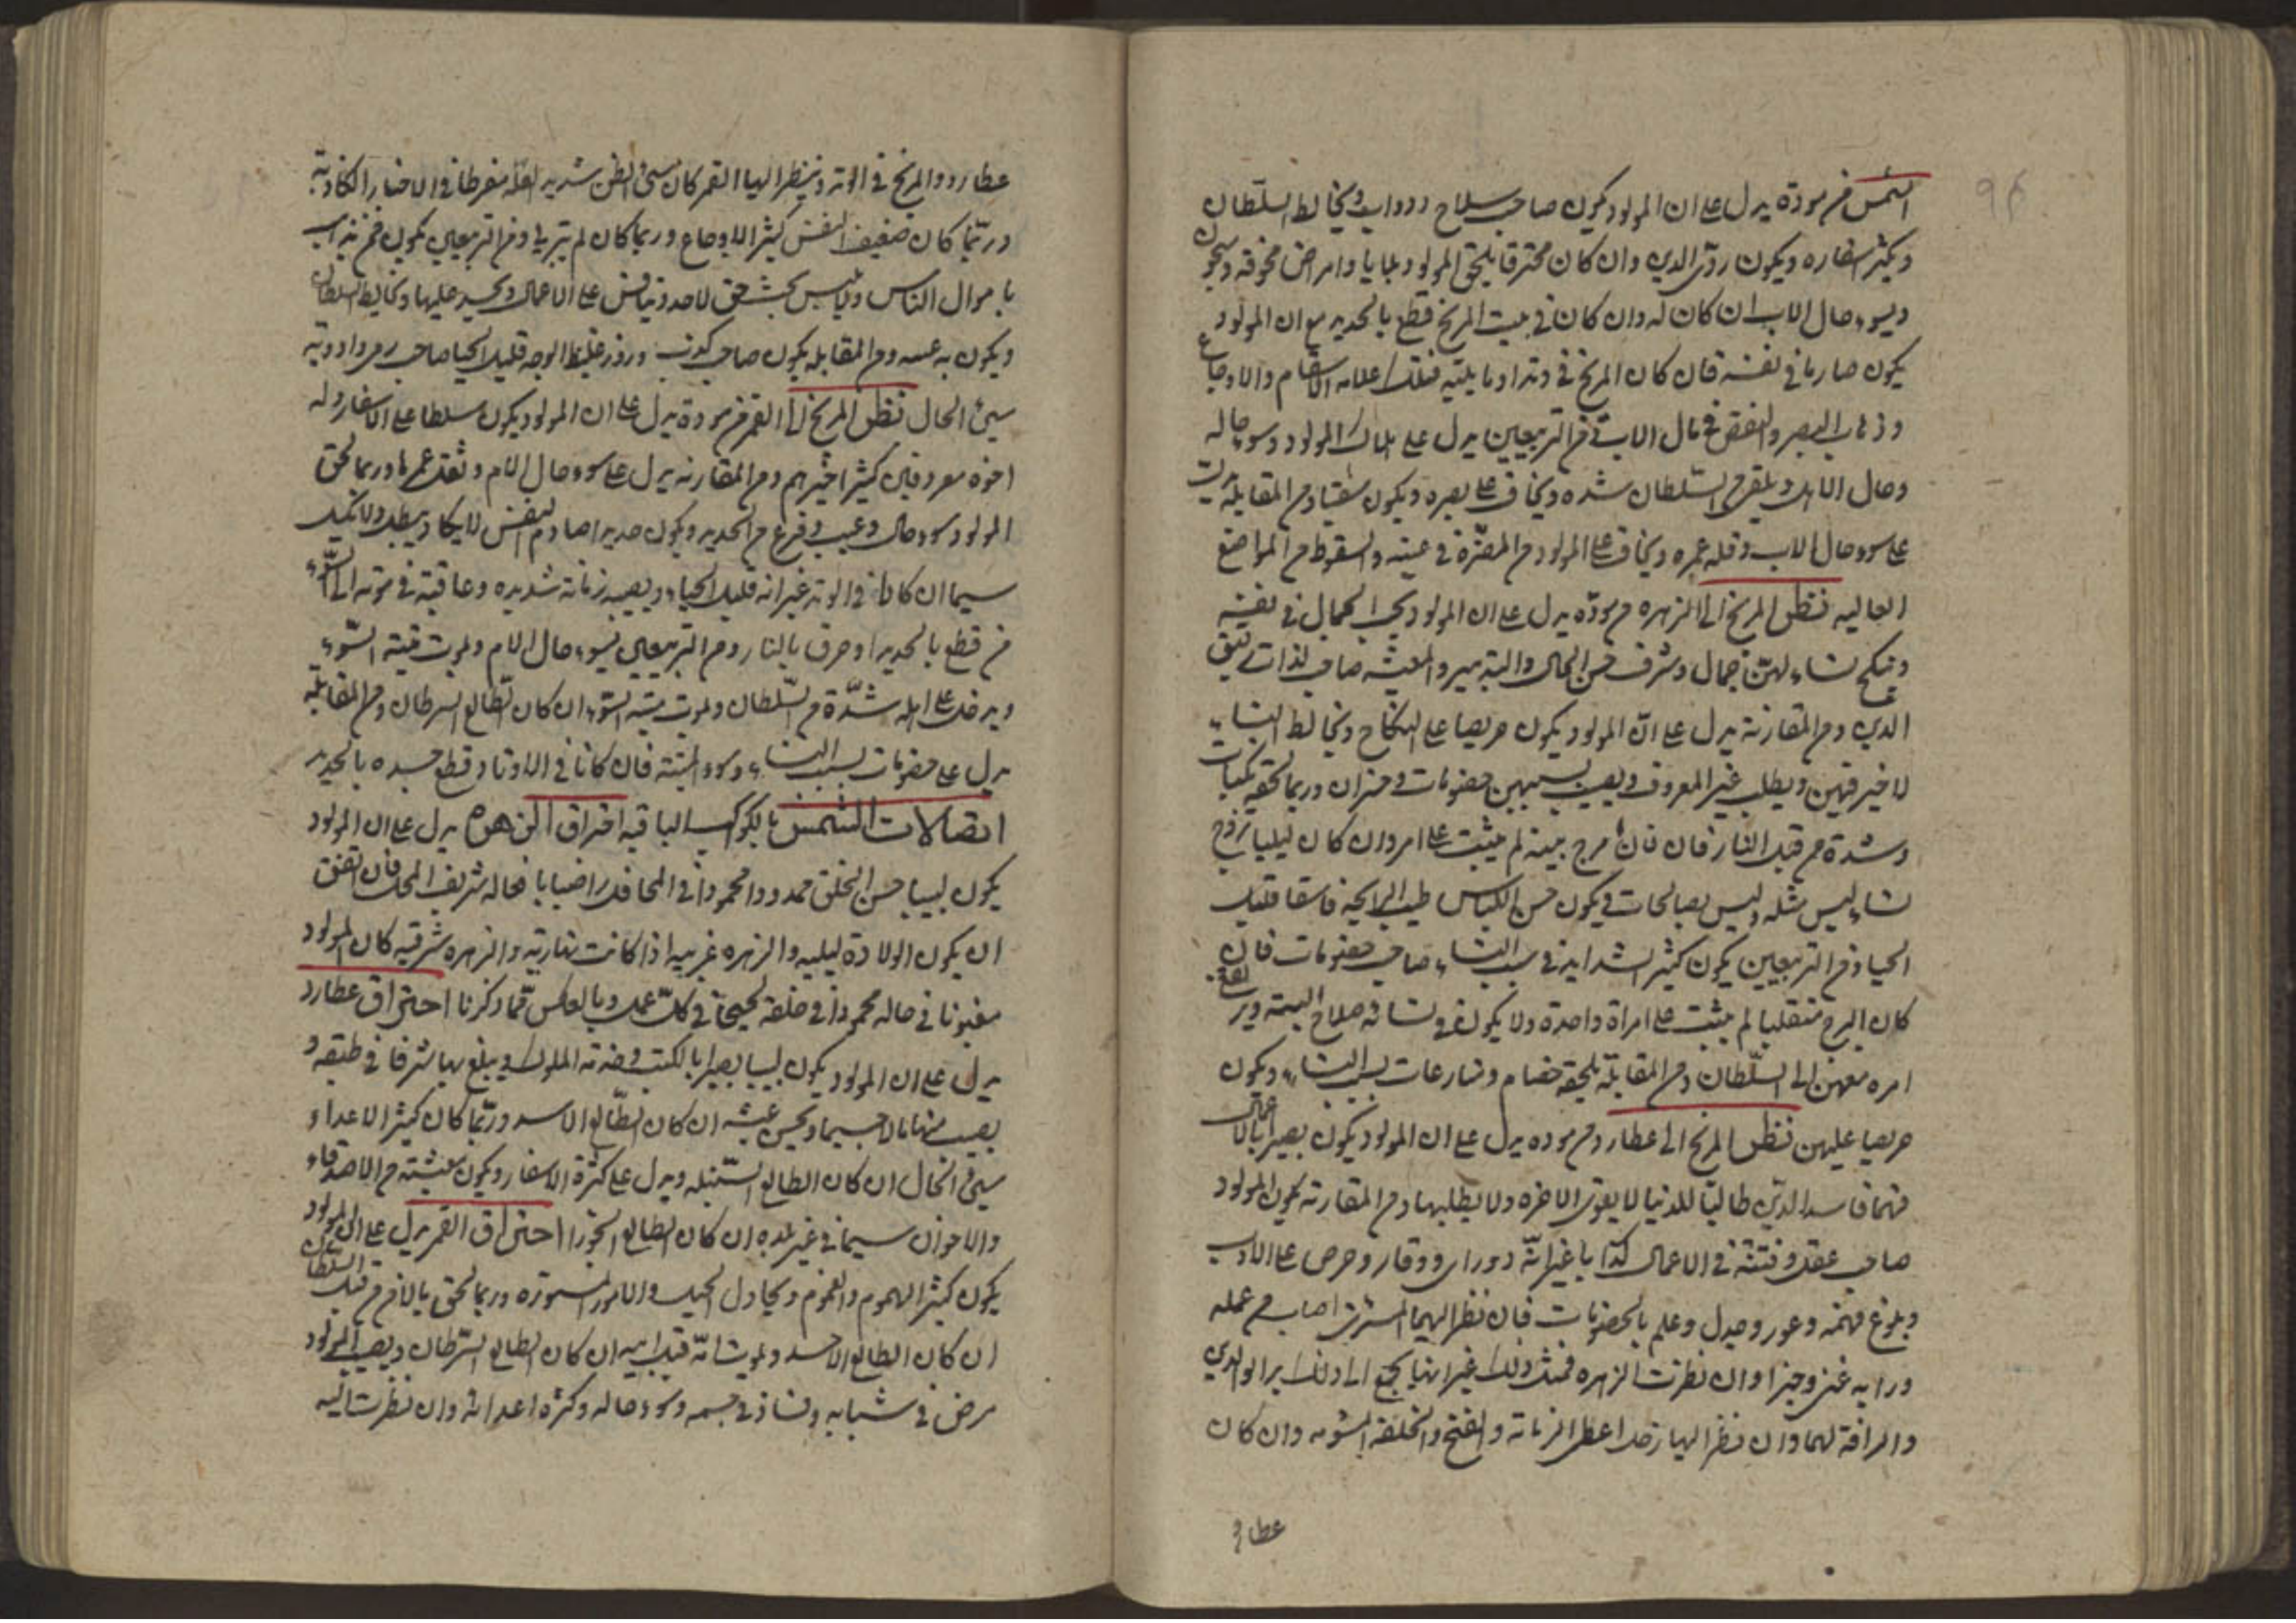 الشمس من مودة يدل على ان المولود يكون صاحب سلاح ودواب ويخالط السلطان
ويكثر اسفاره ويكون ردئ الدين وان كان محترقا يلحق المولود بلايا وامراض مخوفة وسجون
ويسوء حال الاب ان كان له وان كان في بيت المريخ قطع بالحديد مع ان المولود
يكون صارما في نفسه فان كان المريخ في وتد او ما يليه فتلك علامه الاسقام والاوجاع
وذهاب البصر والنقص في مال الاب ومن التربيعين يدل على هلاك المولود وسوء حاله
وحال الاب ويلقى من السلطان شده ويخاف على بصره ويكون شقيا ومن المقابلة يدل
على سوء حال الاب وقله عمره ويخاف على المولود من المضرة في عينه والسقوط من المواضع
العاليه نظر المريخ الى الزهره من مودة يدل على ان المولود يحب الجمال في نفسه
وينكح نساء لهن جمال وشرف حسن الحال والتدبير والمعيشه صاحب لذات رقيق
الدين ومن المقارنة يدل على ان المولود يكون حريصا على النكاح ويخالط النساء
لا خير فيهن ويطلب غير المعروف ويصيب بسببهن خصومات وخسران وربما لحقه نكبات
وشدة من قبل النار فان كان برج بيته لم يثبت على امر وان كان ليليا تزوج
نساء ليس مثله وليس بصالحات ويكون حسن اللباس طيب الرايحة فاسقا قليل
الحيا ومن التربيعين يكون كثير الشدايد في سبب النساء صاحب خصومات فان
كان البرج منقلبا لم يثبت على امراة واحدة ولا يكون في نسائه صلاح البتة ويرتفع
امره معهن الى السلطان ومن المقابلة يلحقه خصام ومنازعات بسبب النساء ويكون
حريصا عليهن نظر المريخ الى عطارد من موده يدل على ان المولود يكون بصيرا بالاعمال
فهما فاسد الدين طالبا للدنيا لا يقوى الاخره ولا يطلبها ومن المقارنه يكون المولود
صاحب عقل وفتنة في الاعمال كذابا غير انه ذو راى ووقار وحرص على الادب
وبلوغ فهمه وغور وجدل وعلم بالخصومات فان نظر اليهما المشترى اصاب من عمله
ورايه غنى وخيرا وان نظرت الزهره فمثل ذلك غير انها يجمع الى ذلك بر الوالدين
والرافة لهما وان نظر اليها زحل اعطى الزمانة والقبح والخلقه المشومه وان كان
عطارد
عطارد والمريخ في الوتد وينظر اليها القمر كان سئ الظن شديد العله مفرطا في الاخبار الكاذبة
وربما كان ضعيف النفس كثير الاوجاع وربما كان لم يتربى ومن التربيعين يكون ممن يذهب
باموال الناس وليس بحق لاحد وينافس على الاعمال ويحسد عليها ويخالط السلطان
ويكون به عسر ومن المقابله يكون صاحب كذب وزور غليظ الوجه قليل الحيا صاحب رقى وادوية
سيئ الحال نظر المريخ الى القمر من مودة يدل على ان المولود يكون مسلطا على الاسفار وله
اخوه معروفين كثير اخيرهم ومن المقارنه يدل على سوء حال الام وثقل عمرها وربما لحق
المولود سوء حال وعيب وفزع من الحديد ويكون حديدا صارم النفس لا يكاد يبطل ولا يمل
سيما ان كان في الوتد غير انه قليل الحياء ويصيبه زمانة شديده وعاقبة في موته الى السوء
من قطع بالحديد او حرق بالنار ومن التربيعين يسوء حال الام ويموت ميتة السوء
ويدخل على اهله شدة من السلطان ويموت ميته السوء ان كان الطالع السرطان ومن المقابله
يدل على خصومات بسبب النساء وسوء الميتة فان كانا في الاوتاد قطع جسده بالحديد
اتصالات الشمس بالكواكب الباقيه احتراق الزهره يدل على ان المولود
يكون لبيبا حسن الخلق ممدودا محمودا في المحافل راضيا بافعاله شريف المحل فان اتفق
ان يكون الولادة ليليه والزهره غربيه اذا كانت نهارية والزهره شرقيه كان المولود
مغبونا في حاله محمودا في خلقه لحيحا في كل عمل وبالعكس مما ذكرنا احتراق عطارد
يدل على ان المولود يكون لبيبا بصيرا بالكتب وخدمة الملوك ويبلغ بها شرفا في طبقه و
يصيب منها مالا جسيما ويحسن عيشه ان كان الطالع الاسد وربما كان كثير الاعداء
سئ الحال ان كان الطالع السنبله ويدل على كثرة الاسفار ويكون معيشته من الاصدقاء
والاخوان سيما في غير بلده ان كان الطالع الجوزا احتراق القمر يدل على ان المولود
يكون كثير الهموم والغموم ويحاول الحيل والامور المستوره وربما لحق بالافه من قبل السلطان
ان كان الطالع الاسد ويموت امه قبل ابيه ان كان الطالع السرطان ويصيب المولود
مرض في شبابه وفساد في جسمه وسوء حاله وكثره اعدائه وان نظرت اليه